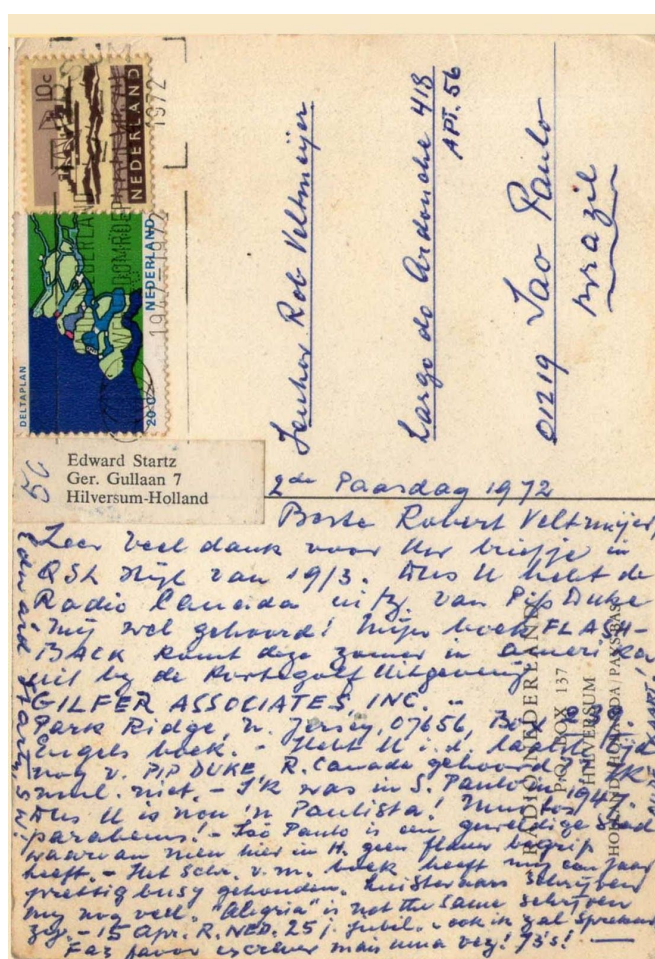 10c
NEDERLAND
DELTAPLAN
20c
NEDERLAND
1947-1972
Senhor Rob Veltmeijer
Largo do Arouche 418
APT. 56
01219 Sao Paulo
Brazil
Edward Startz
Ger. Gullaan 7
Hilversum-Holland
2de Paasdag 1972
Beste Robert Veltmeijer,
Zeer veel dank voor Uw briefje in
QSL stijl van 19/3. Dus U hebt de
Radio Canada uitz. van Pip Duke
mij wel gehoord! Mijn boek FLASH-
BACK komt deze zomer in Amerika
uit by de Kortegolf Uitgeverij
GILFER ASSOCIATES, INC. -
Park Ridge, N. Jersey, 07656, Box
Engels boek. - Hebt U i.d. laatste tijd
nog v. PIP DUKE, R. Canada gehoord? IK
niet. - IK was in S. Paulo in 1947.
Dus U is nou 'n Paulista! Muitos
parabens! - Sao Paulo is een geweldige stad
waarvan men hier in H. geen flauw begrip
heeft. - Het schr. v. m. boek heeft mij een jaar
prettig busy gehouden. Luisteraars schrijven
mij nog veel. "Alegria" is not the same schrijven
zij. - 15 Apr. R. NED. 25 j. jubil. ook ik zal spreken
Faz favor escrever mais uma vez! 73's!
Edward Startz
RADIO NEDERLAND
P.O. BOX 137
HILVERSUM
HOLLAND / HOLANDA / PAKS BAS